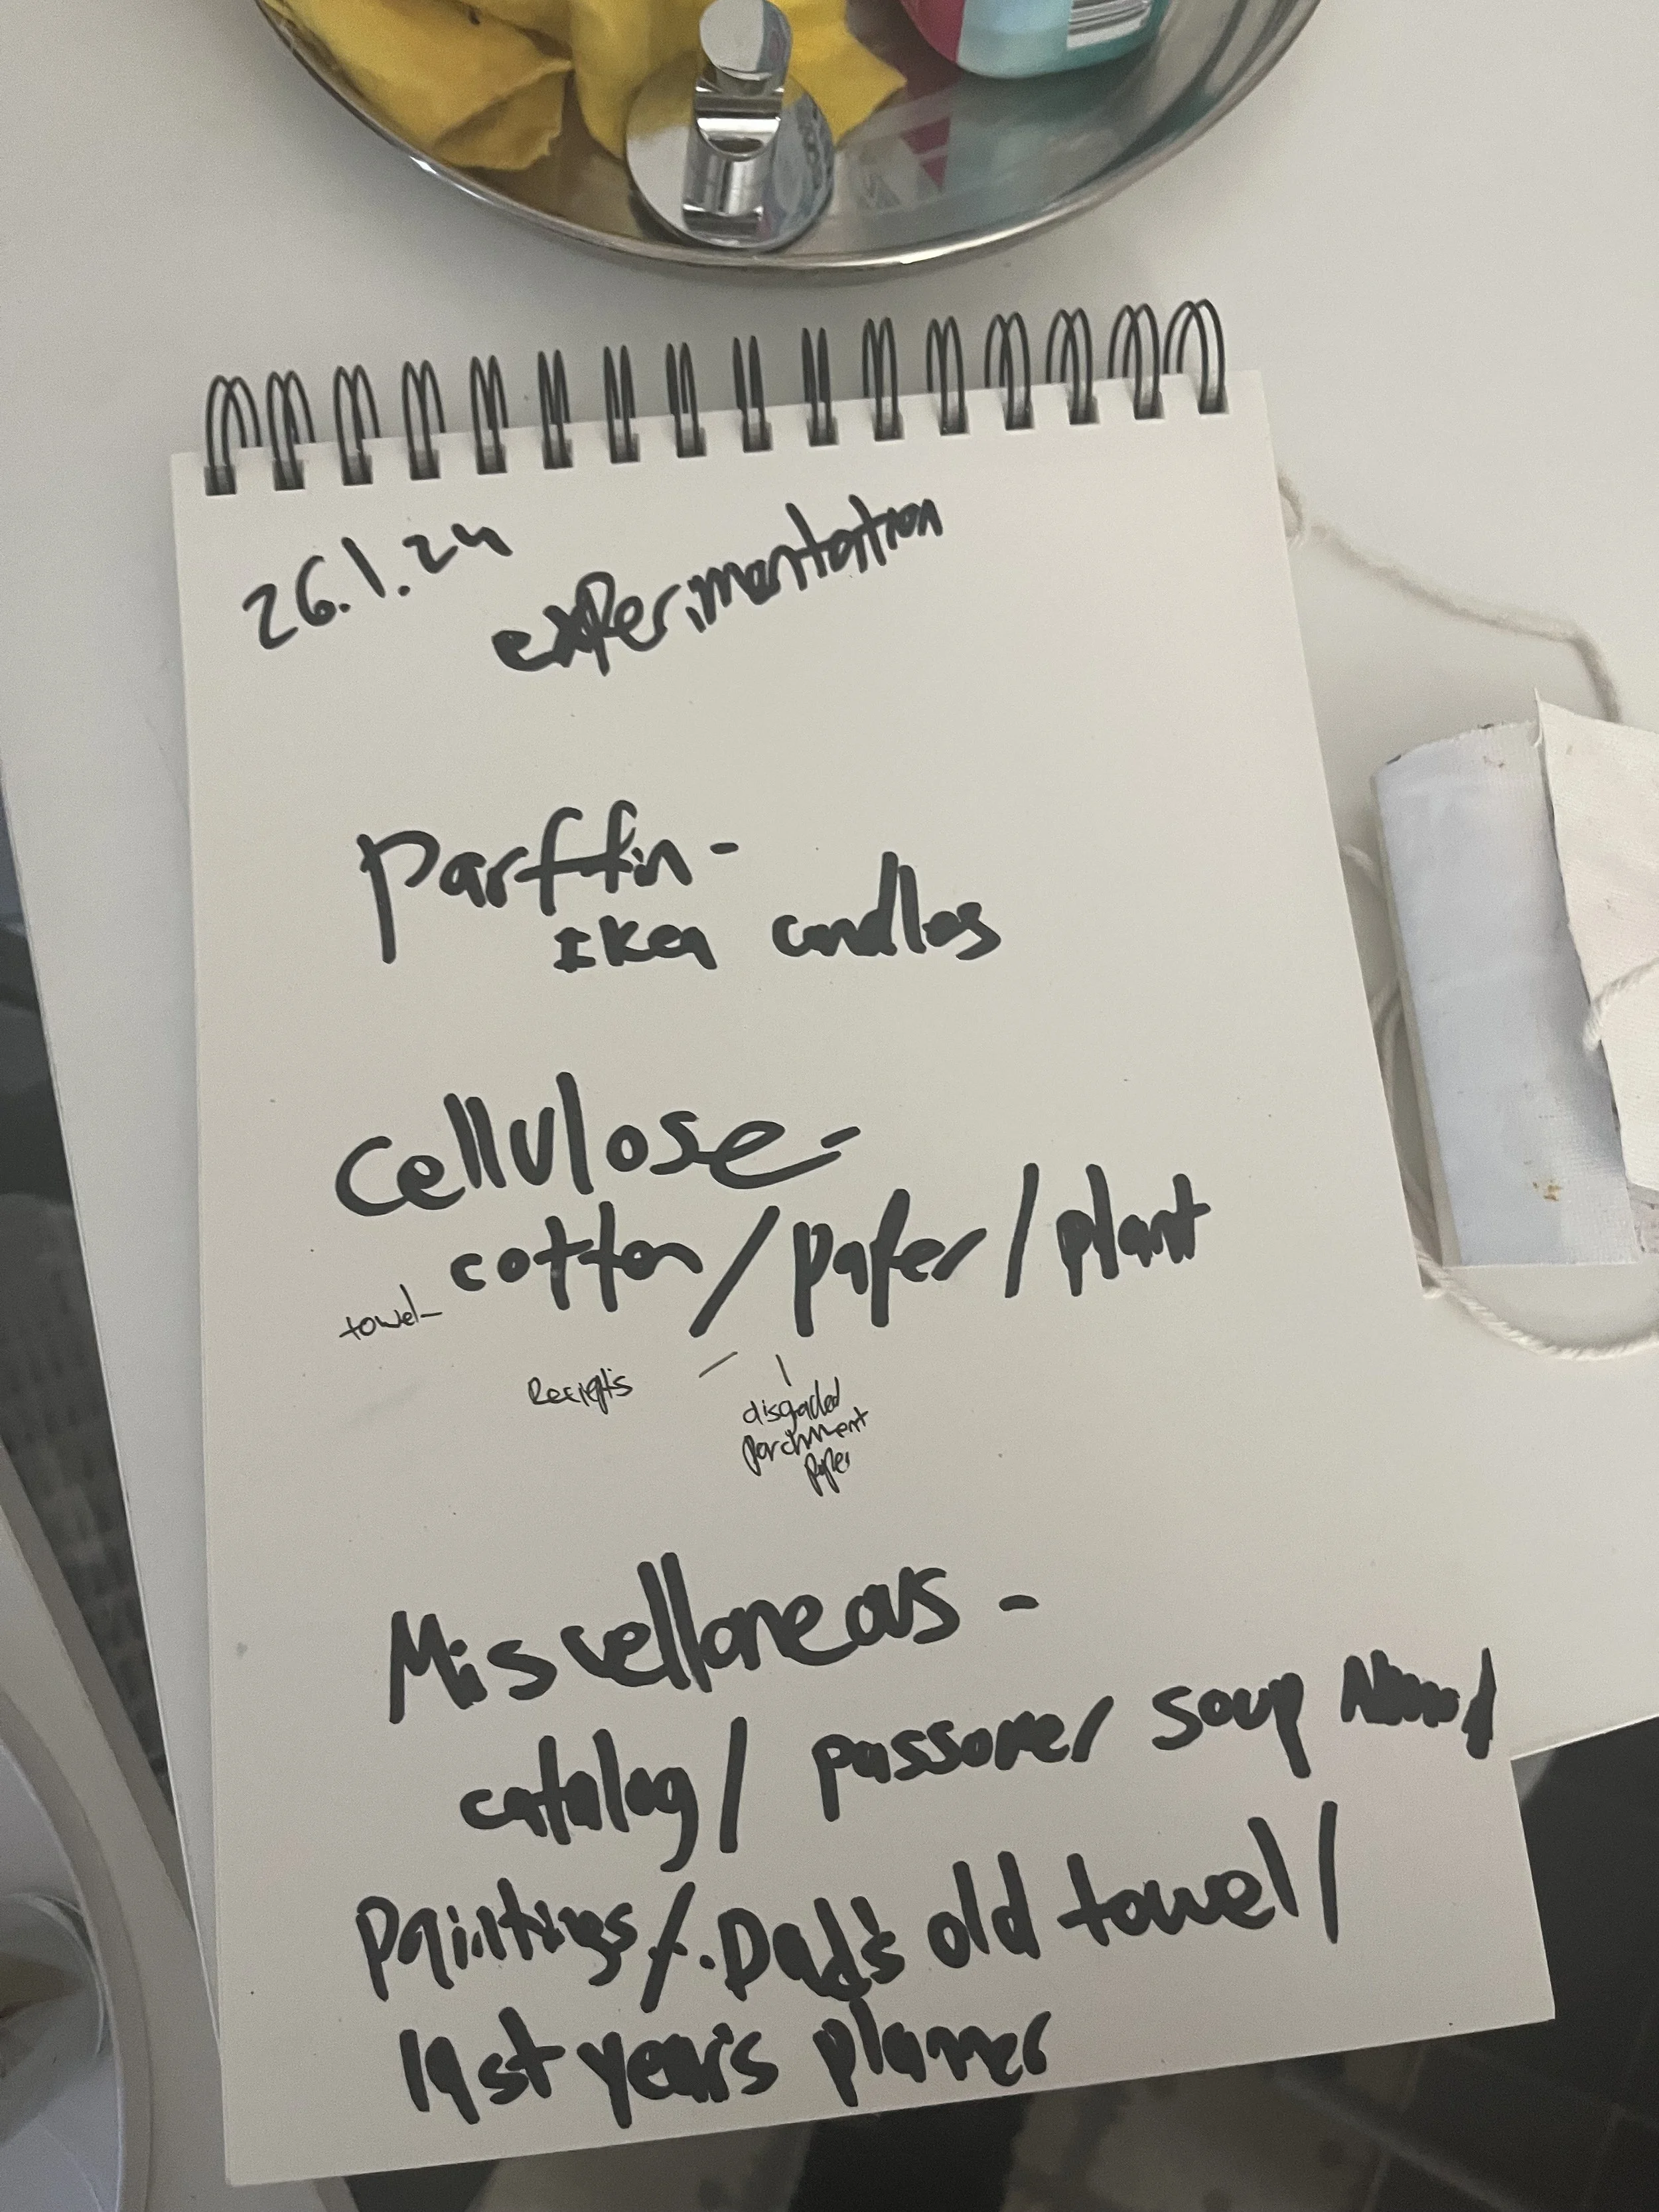 26.1.24
experimentation
Parffin -
Ikea candles
Cellulose -
cotton / paper / plant
towel -
Reciepts
disgarded
parchment
paper
Miscellaneous -
catalog / passover soup
paintings / Dad's old towel /
last year's planner